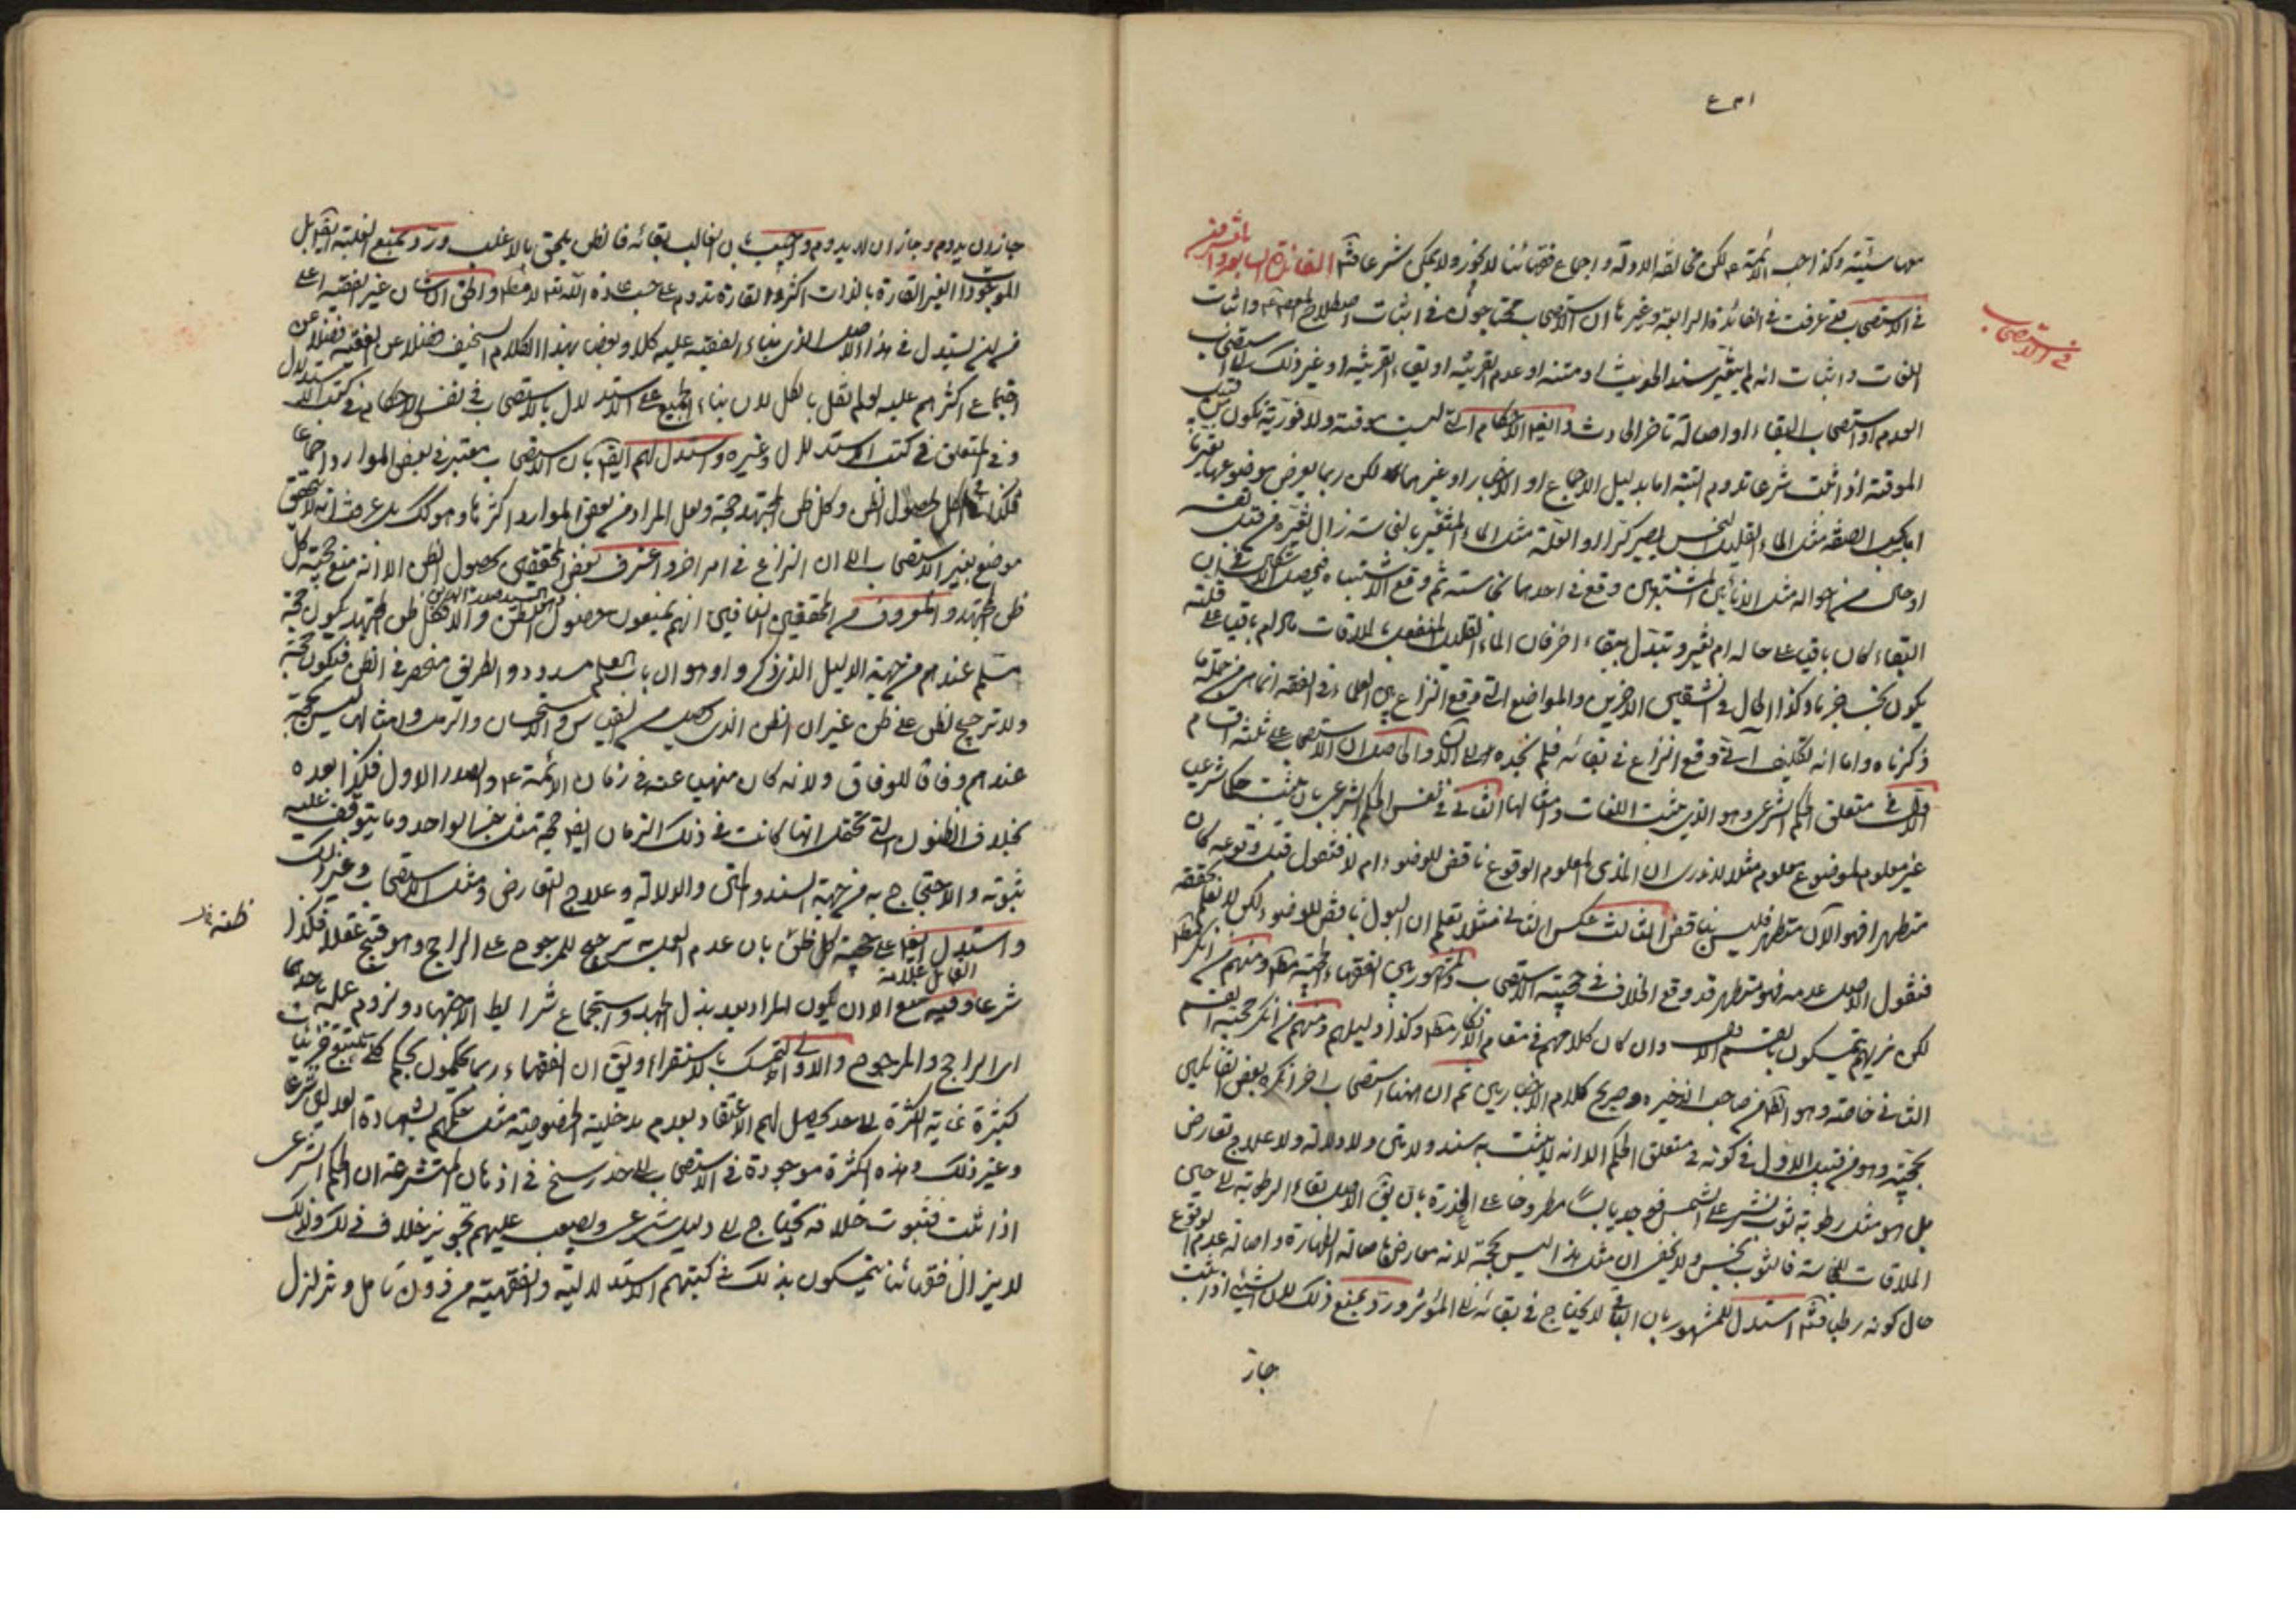 في الاستصحاب
منها سيئته وكذا حب الأئمة ع لكن مخالفة الادلة واجماع فقهائنا لا يجوز ولا يمكن شرعا فتأمل الفائدة السابعة والعشرون
في الاستصحاب قد عرفت في الفائدة الرابعة وغيرها ان الاستصحاب محتاجون في اثبات اصطلاح المعصوم ع واثبات
اللغات واثبات انه لم يتغير سند الحديث او متنه او عدم القرينة او بقاء القرينة او غير ذلك الى استصحاب
العدم او استصحاب البقاء او اصالة تأخر الحادث وايضا الاحكام التي ليست موقتة ولا فورية يكون
الموقتة اذا ثبت شرعا تدوم البتة اما بدليل الاجماع او الاخبار او غيرهما لكن ربما يعرض موضوعها تغير ما
اما بحسب الصفة مثل الماء القليل النجس يصير كرا او العلة مثل الماء المتغير بالنجاسة زال تغيره من قبل نفسه
او حال من احواله مثل الإنائين المشتبهين وقع في احدهما نجاسة ثم وقع الاشتباه فيحصل الاشكال في ان
البقاء كان باقيا على حاله ام تغير وتبدل ببقاء اخر فان الماء القليل المنفعل بالملاقات ما لم باقيا على قلته
يكون نجسا جزما وكذا الحال في الشقين الاخرين والمواضع التي وقع النزاع بين العلماء في الفقه انما هي من جملة ما
ذكرناه واما انه تكليف اي وقع النزاع في بقائه فلم نجده الى الآن والحاصل ان الاستصحاب على ثلثة اقسام
الاول في متعلق الحكم الشرعي وهو الذي مثبت اللغات وامثالها الثاني في نفس الحكم الشرعي بان يثبت حكما شرعيا
غير معلوم لموضوع معلوم مثلا لا ندري ان المذي المعلوم الوقوع ناقض للوضوء ام لا فنقول قبل وقوعه كان
متطهرا فهو الآن متطهر فليس بناقض الثالث عكس الثاني مثلا نعلم ان البول ناقض للوضوء لكن لا نعلم تحققه
فنقول الاصل عدمه فهو متطهر قد وقع الخلاف في حجية الاستصحاب والمشهور بين الفقهاء الحجية مطلقا ومنهم من انكر مطلقا
لكن نريهم يتمسكون بالقسم الاول وان كان كلامهم في مقام الانكار مطلقا وكذا دليلهم ومنهم من انكر حجية القسم
الثاني خاصة وهو الظاهر من صاحب الذخيره وصريح كلام الاخباريين ثم ان ههنا استصحاب اخر انكره بعض القائلين
بحجيته وهو من قبيل الاول في كونه في متعلق الحكم الا انه لا يثبت به سند ولا متن ولا دلالة ولا علاج تعارض
بل هو مثل رطوبة ثوب نشر على الشمس فوجد يابسا مطروحا على العذرة بان يق الاصل بقاء الرطوبة الى حين
الملاقات للنجاسة فالثوب نجس ولا يخفى ان مثل هذا ليس بحجة لانه معارض باصالة الطهارة واصالة عدم الوقوع
حال كونه رطبا فتأمل استدل للمشهور بان الباقي لا يحتاج في بقائه الى المؤثر ورد بمنع ذلك لان الشيء اذا ثبت
جاز
جاز ان يدوم وجاز ان لا يدوم واجيب بان الغالب بقائه فالظن يلحق بالاغلب ورد بمنع الغلبة ايضا بل
الموجودات الغير القارة بالذات اكثر والقارة تدوم على حسب عادة الله لا مطلقا والحق ان غير الفقيه
من اين يستدل في هذا الاصل الذي بناء الفقيه عليه كلا وبعض بهذا الكلام السخيف فضلا عن الفقيه فضلا عن
اجتماع اكثرهم عليه لو لم نقل بالكل لان بناء الجميع على الاستدلال بالاستصحاب في نفس الاحكام في كتب الاستدلال
وفي المتعلق في كتب الاستدلال وغيره واستدل لهم ايضا بان الاستصحاب معتبر في بعض الموارد اجماعا
فكذا في الكل لحصول الظن وكل ظن المجتهد حجة ولعل المراد من بعض الموارد اكثرها وهو كك بل عرفت انه لا يتحقق
موضع بغير الاستصحاب الا ان النزاع في امر اخر واعترف بعض المحققين بحصول الظن الا انه منع حجية كل
ظن المجتهد والمعروف من المحققين النافين انهم يمنعون حصول الظن والا فكل ظن المجتهد يكون حجة
مسلم عندهم من جهة الدليل الذي ذكروا وهو ان باب العلم مسدود والطريق منحصر في الظن فيكون حجة
ولا ترجيح لظن على ظن غير ان الظن الذي يحصل من القياس والاستحسان والرمل وامثالها ليس بحجة
عندهم وفاقا للوفاق ولانه كان منهيا عنه في زمان الأئمة ع والصدر الاول فكذا بعده
بخلاف الظنون التي تحقق انها كانت في ذلك الزمان ايضا حجة مثل خبر الواحد وما يتوقف عليه
ثبوته والاحتجاج به من جهة السند والمتن والدلالة وعلاج التعارض ومثل الاستصحاب وغير ذلك
واستدل ايضا على حجية كل ظن بان عدم العمل به ترجيح للمرجوح على الراجح وهو قبيح عقلا فكذا
شرعا وفيه منع الا ان يكون المراد بعد بذل الجهد واستجماع شرايط الاجتهاد ولزوم عمله باحدهما
اي الراجح والمرجوح والاولى التمسك بالاستقراء ويق ان الفقهاء ربما يحكمون بحكم كلي بتتبع جزئيات
كثيرة غاية الكثرة الى حد يحصل لهم الاعتقاد بعدم مدخلية الخصوصية مثل حكمهم بشهادة العدلين شرعا
وغير ذلك وهذه الكثرة موجودة في الاستصحاب الى حد رسخ في اذهان المتشرعة ان الحكم الشرعي
اذا ثبت فثبوت خلافه يحتاج الى دليل شرعي ويصعب عليهم تجويز خلاف ذلك ولذلك
لا يزال فقهائنا يتمسكون بذلك في كتبهم الاستدلالية والفقهية من دون تأمل وتزلزل